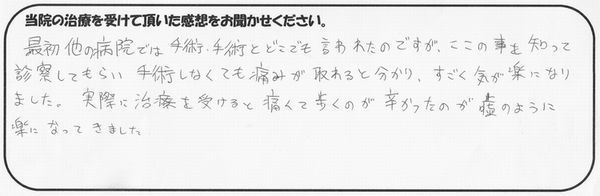 当院の治療を受けて頂いた感想をお聞かせください。
最初他の病院では手術・手術とどこでも言われたのですが、ここの事を知って
診察してもらい手術しなくても痛みが取れると分かり、すごく気が楽になり
ました。実際に治療を受けると痛くて歩くのが辛かったのが嘘のように
楽になってきました